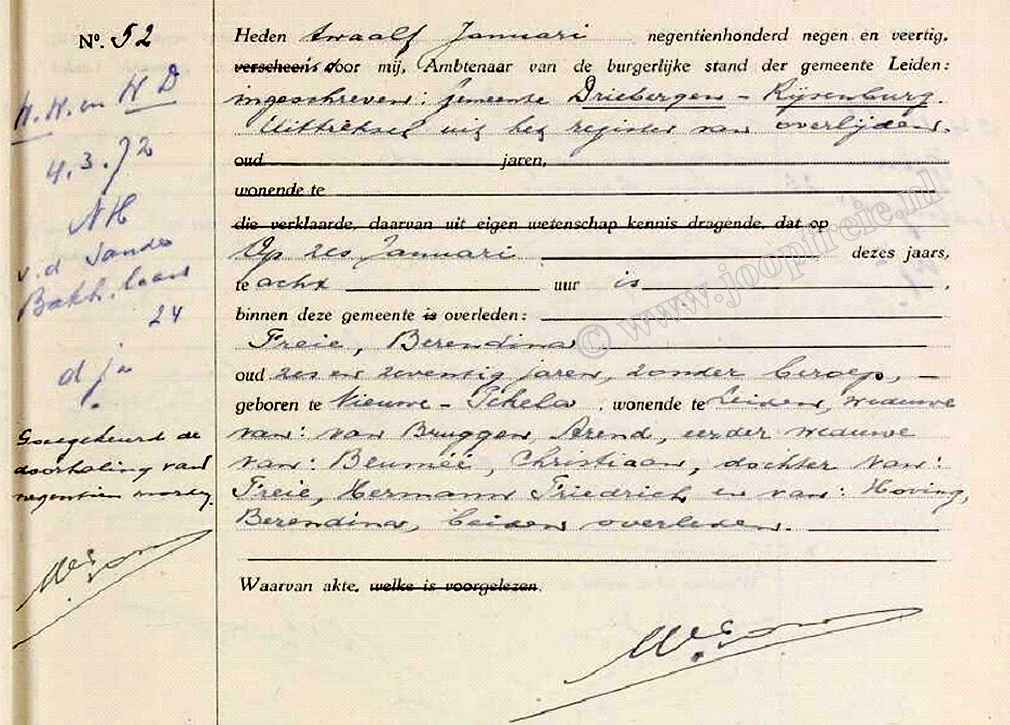 Nº. 52
H.H. en H D
4.3.72
NH
v.d Sande
Bakh. laan
24
d ja
Goedgekeurd de
doorhaling van
negentien woorden.
Heden twaalf Januari negentienhonderd negen en veertig,
verscheen is door mij, Ambtenaar van de burgerlijke stand der gemeente Leiden:
ingeschreven: gemeente Driebergen - Rijsenburg.
Uittreksel uit het register van overlijden.
oud jaren,
wonende te
die verklaarde, daarvan uit eigen wetenschap kennis dragende, dat op
Op zes Januari dezes jaars,
te acht uur is ,
binnen deze gemeente is overleden:
Freie, Berendina
oud zes en zeventig jaren, zonder beroep, –
geboren te Nieuwe - Pekela , wonende te Leiden, weduwe
van: van Bruggen, Arend, eerder weduwe
van: Beumëë, Christiaan, dochter van:
Freie, Hermann Friedrich en van: Hoving,
Berendina, beiden overleden.
Waarvan akte, welke is voorgelezen.
© www.joopfreie.nl